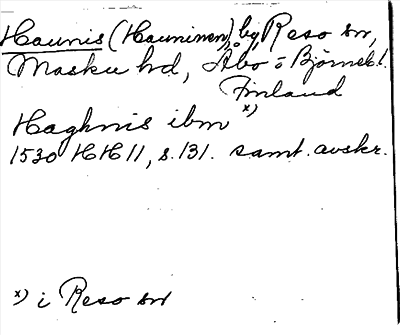 Haunis (Hauninen), by, Reso sn,
Masku hd, Åbo o Björneb. l.
Finland
Haghnis ibm x)
1530 HH II, s. 131. samt. avskr.
x) i Reso sn